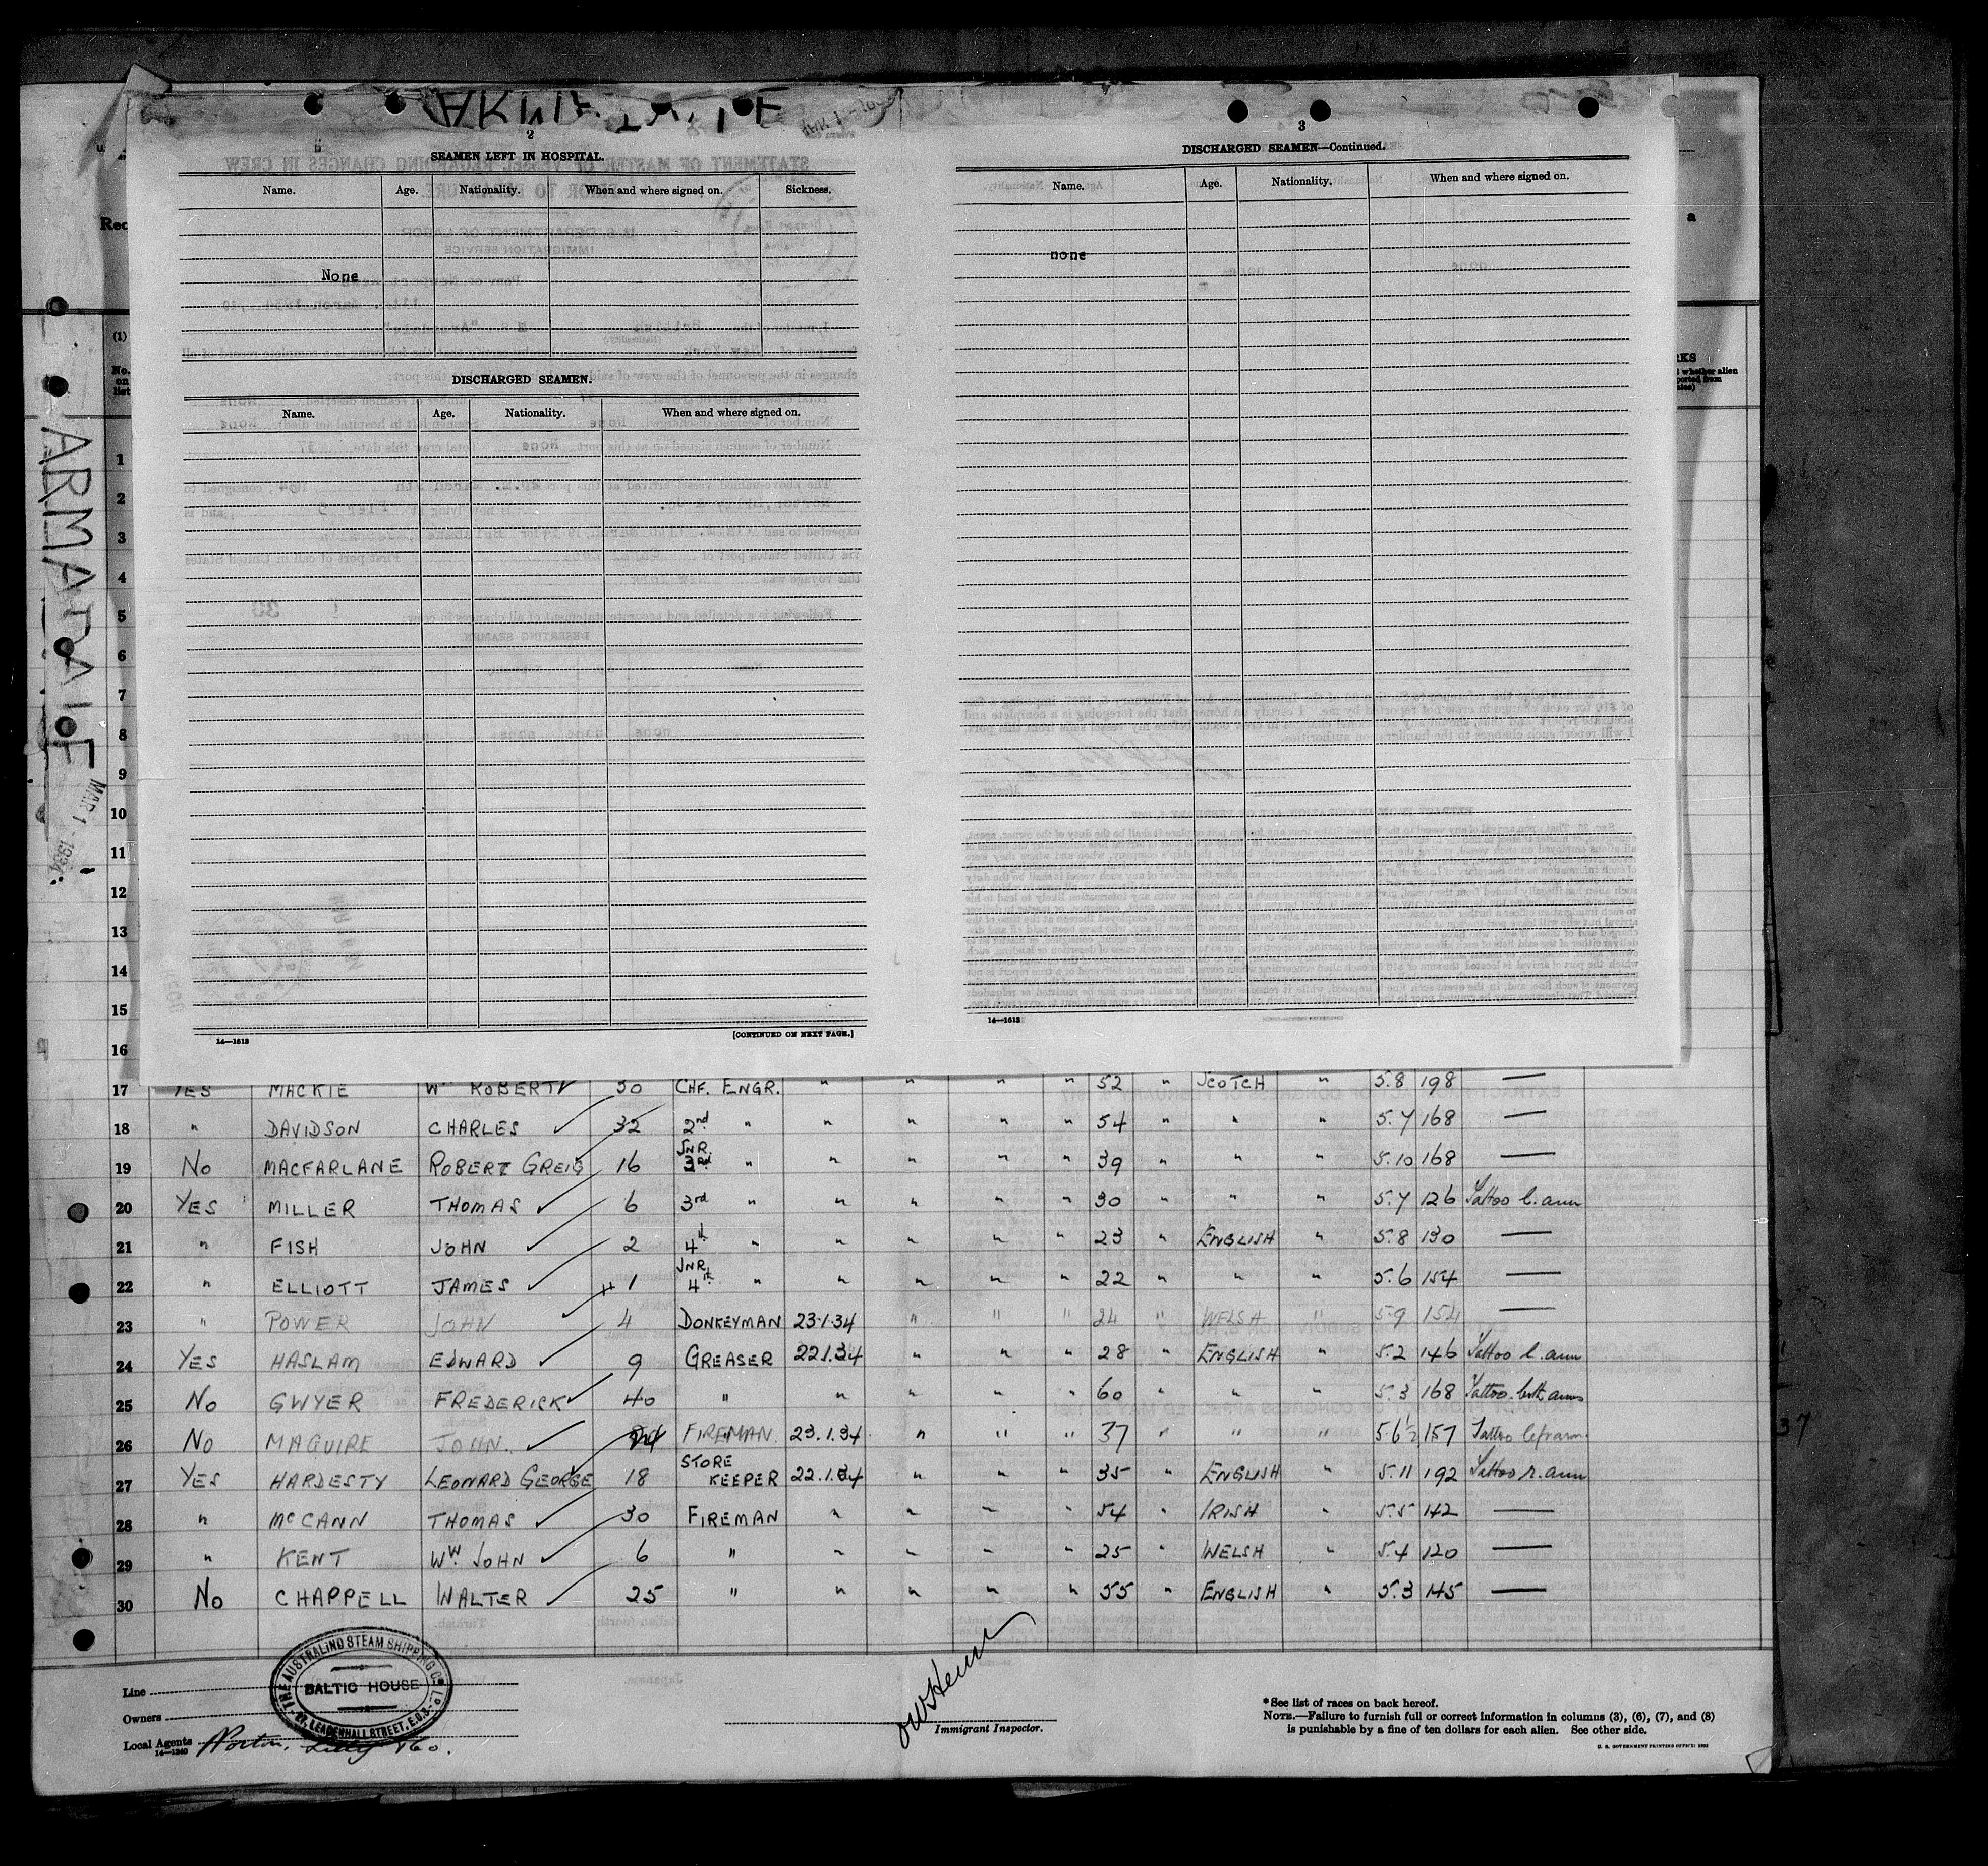 2
SEAMEN LEFT IN HOSPITAL.
Name. Age. Nationality. When and where signed on. Sickness.
None
DISCHARGED SEAMEN.
Name. Age. Nationality. When and where signed on.
14—1613
[CONTINUED ON NEXT PAGE.]
3
DISCHARGED SEAMEN—Continued.
Name. Age. Nationality. When and where signed on.
none
14—1613
ARMADALE
MAR 1 - 1934
Rec
a
(1)
No. on list
RKS
whether alien
ported from
ates)
1
2
3
4
5
6
7
8
9
10
11
12
13
14
15
16
17 YES MACKIE Wm ROBERT 30 CHF. ENGR. " " " " 52 " SCOTCH " 5.8 198 —
18 " DAVIDSON CHARLES 32 2nd " " " " " 54 " " " 5.7 168 —
19 No MACFARLANE ROBERT GREIG 16 JNR. 3rd " " " " " 39 " " " 5.10 168 —
20 YES MILLER THOMAS 6 3rd " " " " " 30 " " " 5.7 126 Tattoo l. arm
21 " FISH JOHN 2 4th " " " " " 23 " ENGLISH " 5.8 130 —
22 " ELLIOTT JAMES 1 JNR. 4th " " " " " 22 " " " 5.6 154 —
23 " POWER JOHN 4 DONKEYMAN 23.1.34 " " " 24 " WELSH " 5.9 154 —
24 YES HASLAM EDWARD 9 GREASER 22.1.34 " " " 28 " ENGLISH " 5.2 146 Tattoo l. arm
25 No GWYER FREDERICK 40 " " " " " 60 " " " 5.3 168 Tattoo both arms
26 No MAGUIRE JOHN. FIREMAN. 23.1.34 " " " 37 " " " 5.6½ 157 Tattoo left arm
27 YES HARDESTY LEONARD GEORGE 18 STORE KEEPER 22.1.34 " " " 35 " ENGLISH " 5.11 192 Tattoo r. arm
28 " McCANN THOMAS 30 FIREMAN " " " " 54 " IRISH " 5.5 142 —
29 " KENT Wm JOHN 6 " " " " " 25 " WELSH " 5.4 120 —
30 No CHAPPELL WALTER 25 " " " " " 55 " ENGLISH " 5.3 145 —
37
Line
Owners
Local Agents Norton, Lilly & Co.
14—1240
THE AUSTRALIND STEAM SHIPPING Co. LD.
BALTIC HOUSE
27, LEADENHALL STREET, E.C.3.
Immigrant Inspector.
*See list of races on back hereof.
NOTE.—Failure to furnish full or correct information in columns (3), (6), (7), and (8)
is punishable by a fine of ten dollars for each alien. See other side.
U. S. GOVERNMENT PRINTING OFFICE: 1932